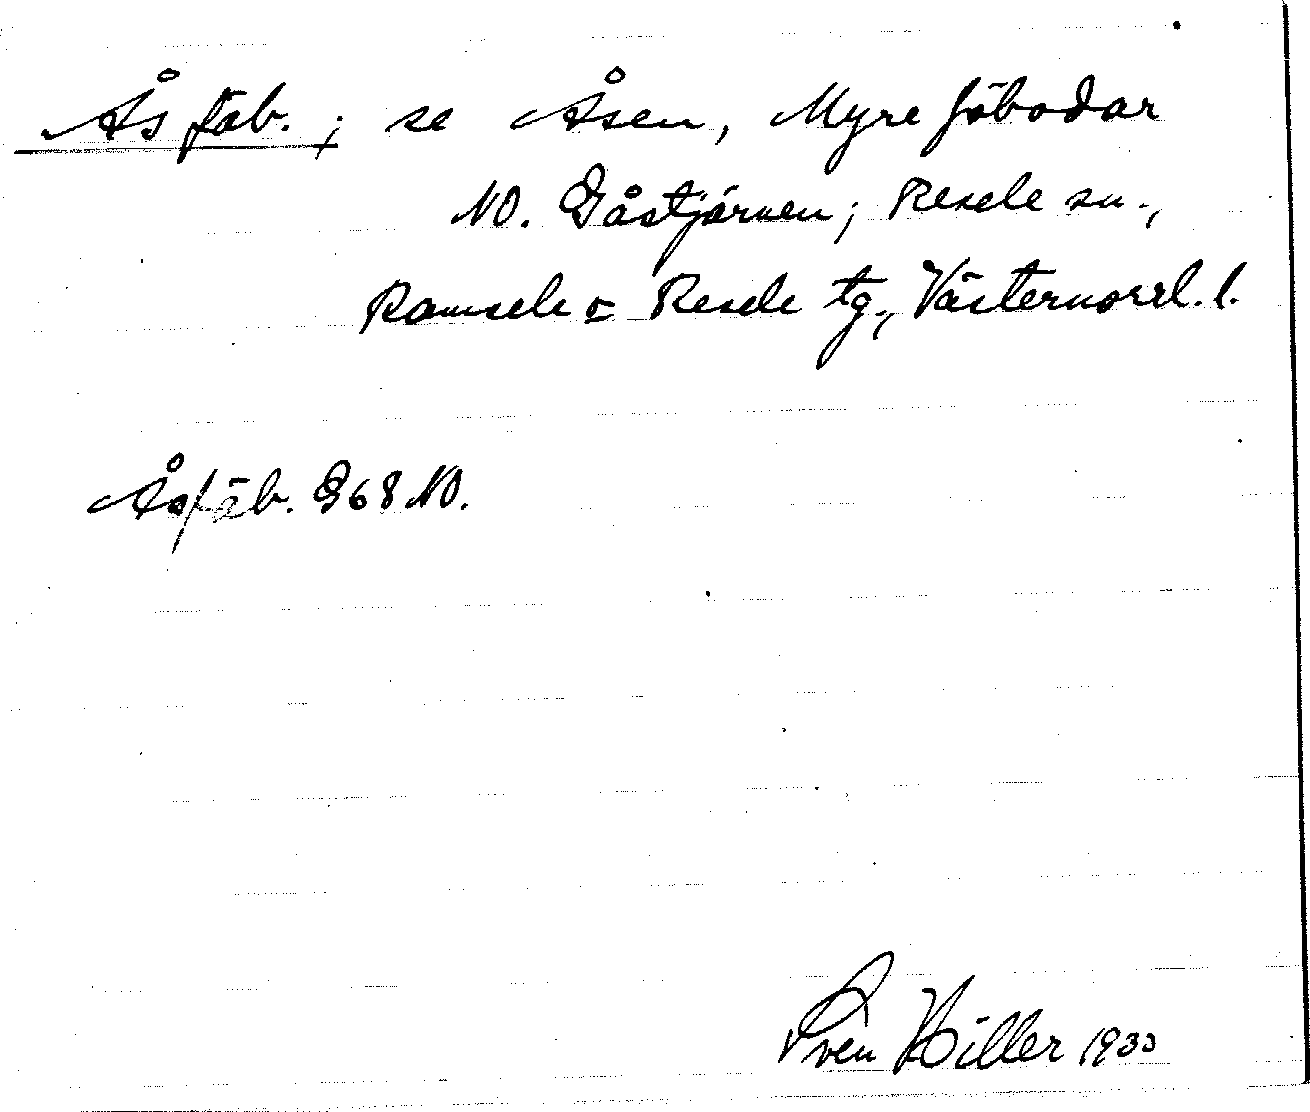 Ås fäb.; se Åsen, Myre fäbodar
NO. Gåstjärnen; Resele sn.,
Ramsele o Resele tg., Västernorrl. l.
Åsfäb. G68 NO.
Sven Hiller 1933